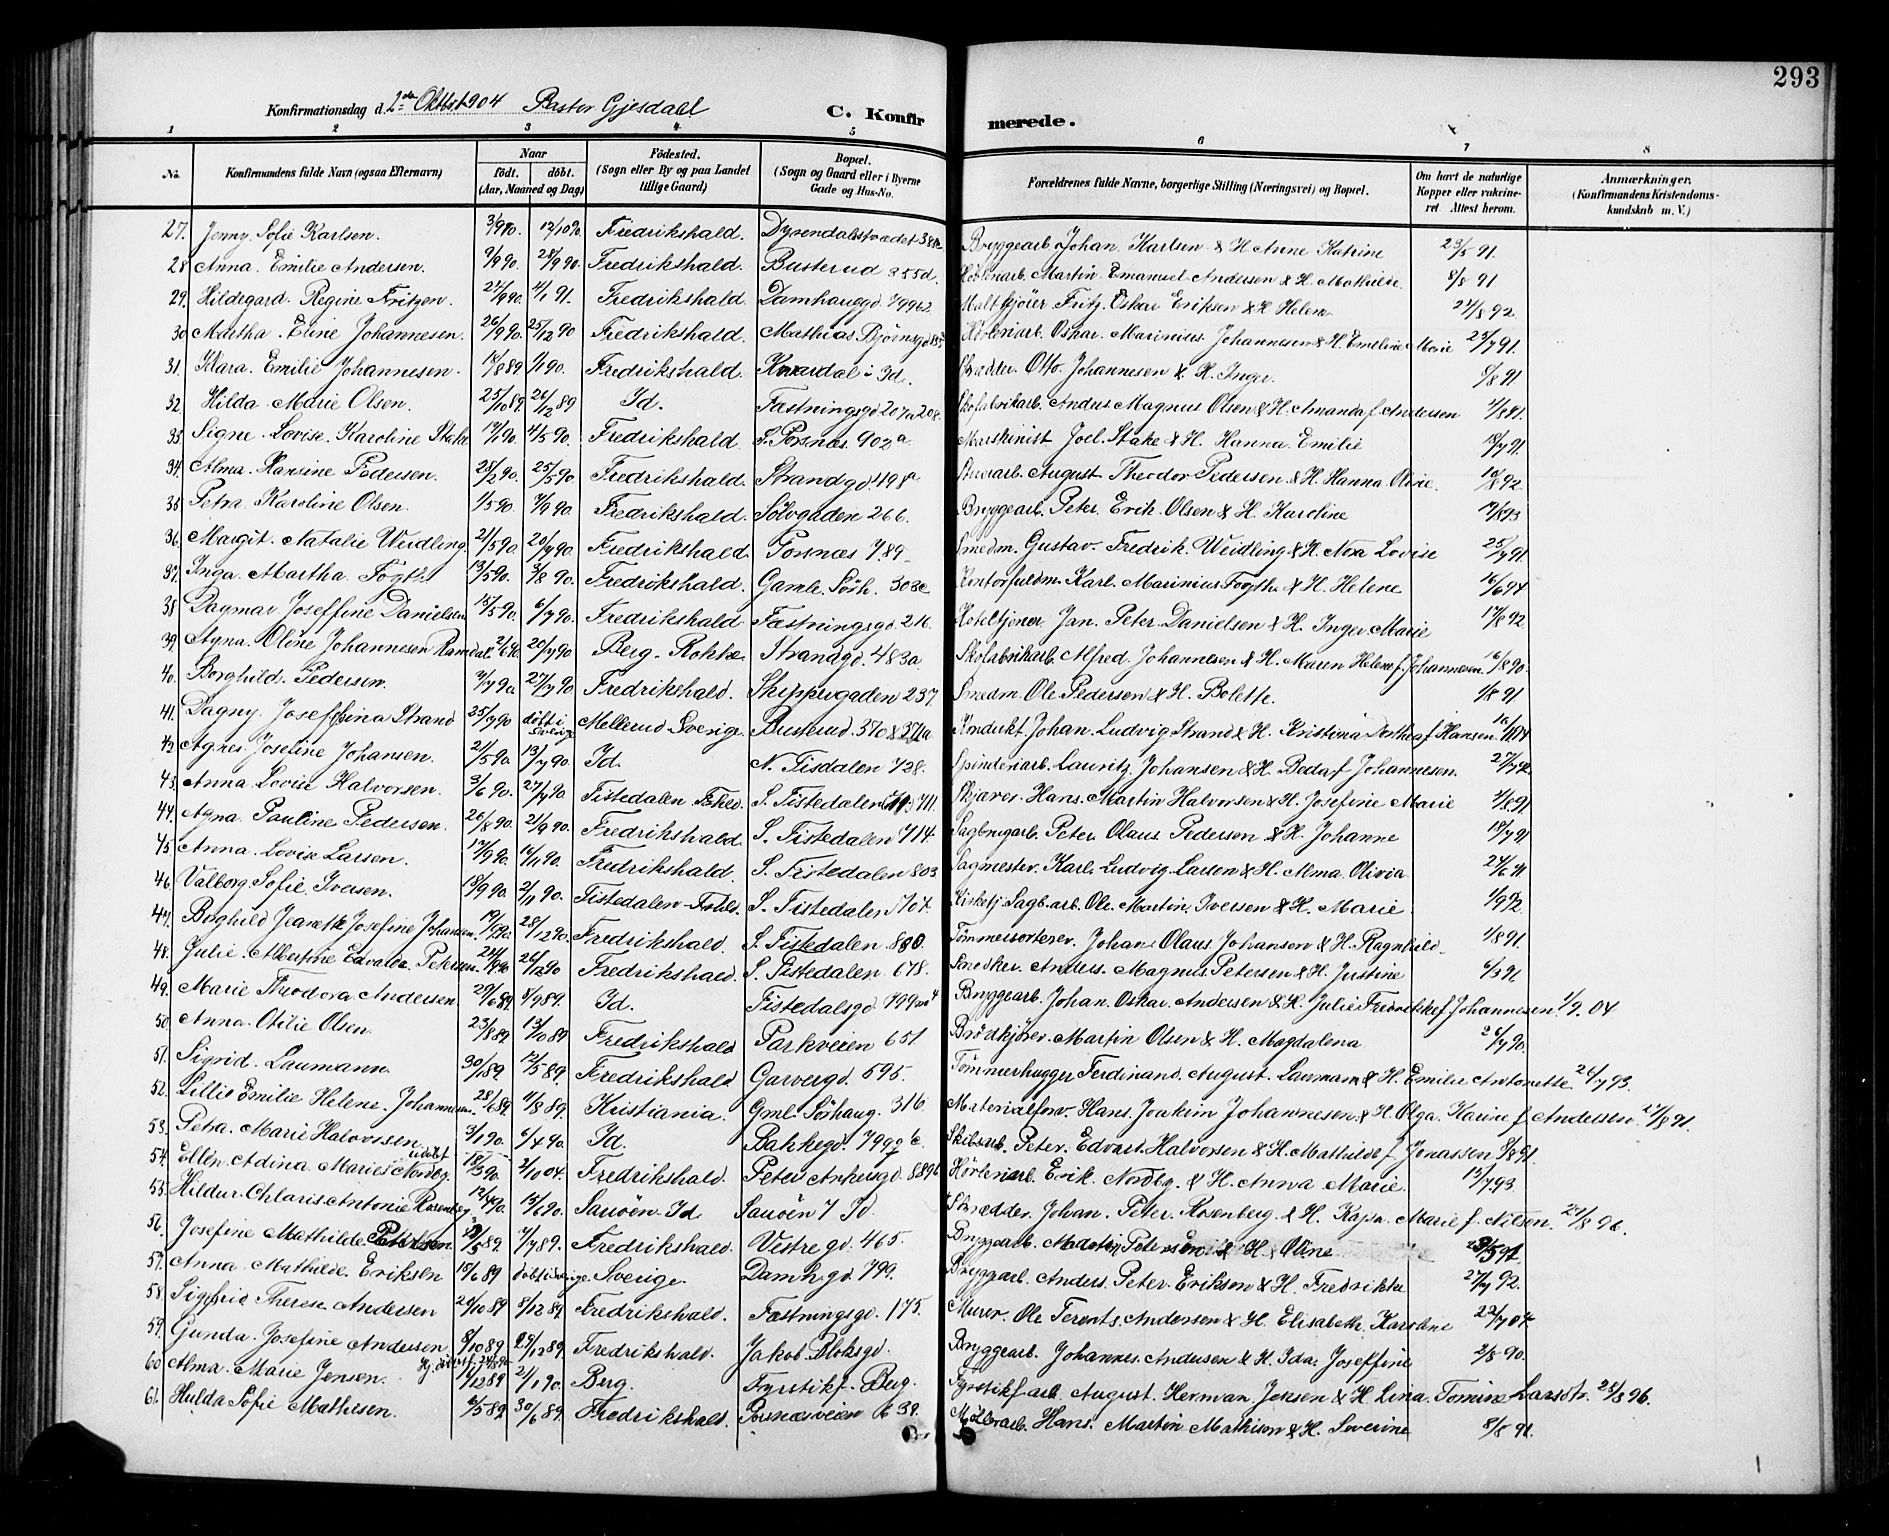 293
Konfirmationsdag d. 2den Oktbr. 1904 Pastor Gjesdahl C. Konfirmerede.
1 2 3 4 5 6 7 8
No. Konfirmandens fulde Navn (ogsaa Efternavn) Naar födt. döbt. (Aar, Maaned og Dag) Födested. (Sogn eller By og paa Landet tillige Gaard) Bopæl. (Sogn og Gaard eller i Byerne Gade og Hus-No. Forældrenes fulde Navne, borgerlige Stilling (Næringsvei) og Bopæl. Om havt de naturlige Kopper eller vakcineret Attest herom. Anmærkninger. (Konfirmandens Kristendomskundskab m. V.)
27. Jenny Sofie Karlsen. 12/10 90 Fredrikshald. Bryggearb. Johan Karlsen & H. Anne Katrine 23/5 91.
28 Anna Emilie Andersen. 9/9 90. 28/9 90. Fredrikshald. Busterud 355d. Martin Emanuel Andersen & H. Mathilde. 8/8 91
29. Hildegard Regine Fritzen. 4/1 91. Fredrikshald. Damhauggd. 799b2 Fritz Oskar Eriksen & H. Helene 24/8 92.
30 Martha Eline Johannesen. 26/9 90. 25/12 90 Fredrikshald. Mathias Bjørnsgd Oskar Marinius Johannesen & H. Emeline Marie 25/7 91.
31. Klara Emilie Johannesen. 18/8 89 1/1 90. Fredrikshald. i Id. Skrædder. Otto Johannesen & H. Inger. 5/8 91
32. Hilda Marie Olsen. 25/10 89. 26/12 89 Id. Fæstningsgd 207 a 208. Skofabrikarb. Anders Magnus Olsen & H. Amanda f. Andersen 1/8 91.
33. Signe Lovise Karoline Stake 4/5 90. Fredrikshald S. Porsnæs. 902a Maskinist Joel Stake & H. Hanna Emilie 18/7 91.
34. Alma Hansine Pedersen. 28/2 90. 25/5 90 Fredrikshald. Strandgd 498a August Theodor Pedersen & H. Hanna Olivie. 10/8 92
35 Petra Karoline Olsen. 1/5 90. 7/9 90. Fredrikshald. Sölvgaden 266. Bryggearb. Peter Erik Olsen & H. Karoline
36. Margit Natalie Weidling. 21/5 90. 20/7 90. Fredrikshald. Porsnæs 789. Smedm. Gustav Fredrik Weidling & H. Lovise 25/7 91.
37. Inga Martha Fogth 13/5 90. 3/8 90. Fredrikshald. Gamle Sörh. 303c Karl Marinius Fogth & H. Helene 16/6 94
38 Dagmar Joseffine Danielsen 15/5 90. 6/7 90. Fredrikshald Fæstningsgd 216. Hoteltjener Jan Peter Danielsen & H. Inger Marie 17/8 92
39. Agna Oline Johannesen Ramdal 20/7 90 Berg. Rokke Strandgd. 483a. Skofabrikarb. Alfred Johannesen & H. Maren Helene f. Johannesen 16/8 90.
40. Borghild Pedersen. 27/7 90 Fredrikshald. Skippergaden 237. Smedm. Ole Pedersen & H. Bolette. 1/8 91.
41. Dagny Joseffina Strand 25/7 90 döbt i Sverige Mellerud Sverige. Busterud. 370 & 371a Kondukt. Johan Ludvig Strand & H. Kristina Dorthea f Hansen.
42 Agnes Josefine Johansen. 21/5 90. 13/7 90. Id. N. Tisdalen 728. Spinderiarb. Lauritz Johansen & H. Beda f Johannesen.
43. Anna Lovise Halvorsen. 3/6 90. 27/7 90 Tistedalen S. Tistedalen 711. Skjærer. Hans Martin Halvorsen & H. Josefine Marie 4/8 91.
44. Agna Pauline Pedersen. 26/8 90. 21/9 90. Fredrikshald. S. Tistedalen 714. Sagbrugarb. Peter Olaus Pedersen & H. Johanne 18/7 91
45 Anna Lovise Larsen. 17/9 90. 16/11 90. Fredrikshald. S. Tistedalen 803 Sagmester. Karl Ludvig Larsen & H. Alma Olivia
46. Valborg Sofie Iversen. 18/9 90. 2/11 90. Tistedalen S. Tistedalen 707. Sagb.arb. Ole Martin Iversen & H. Marie. 1/9 92.
47. Borghild Jeanette Josefine Johansen. 28/12 90. Fredrikshald. S. Tistedalen. 880. Tömmersorterer. Johan Olaus Johansen & H. Ragnhild 1/8 91.
48. Julie Albertine Edvalda Petersen. 26/12 90 Fredrikshald S. Tistedalen. 678. Snedker. Anders Magnus Petersen & H. Justine
49. Marie Theodora Andersen 29/6 89. 8/9 89. Id. Tistedalsgd 799 Bryggearb. Johan Oskar Andersen & H. Julie Fredrikke f Johannesen. 1/9 04.
50. Anna Otilie Olsen. 23/8 89. 13/10 89 Fredrikshald Parkveien 651. Brödkjörer. Martin Olsen & H. Magdalena 26/7 90.
51. Sigrid Laumann. 30/1 89. 12/5 89. Fredrikshald Garvergd. 695. Tömmerhugger Ferdinand August Laumann & H. Emilie Antonette. 26/7 93.
52. Lillie Emilie Helene Johannesen. 28/6 89. 11/8 89. Kristiania. Gml. Sörhaug. 316. Materialforv. Hans Joakim Johannesen & H. Olga Karine f Andersen. 27/8 91.
53. Petra Marie Halvorsen. 3/1 90. 6/4 90. Id. Bakkegd. 799 Skibsarb. Peter Edvard Halvorsen & H. Mathilde f Jonassen 8/8 91.
54. Ellen Adina Marie Nordbg. 18/3 90. 2/10 04. Fredrikshald. Peter Ankersgd. 889b Erik Nordbg. & H. Anna Marie. 15/7 93.
55. Hildur Chlaris Antonie Rosenberg 12/4 90. 15/6 90. Sauöen Id Sauöen 7 Id. Skrædder Johan Peter Rosenberg & H. Kaja Marie f. Nilsen. 27/8 96.
56. Josefine Mathilde Petersen 7/7 89. Fredrikshald. Vestregd. 465. Bryggearb. Petersen & H. Oline
57. Anna Mathilde Eriksen 15/6 89 döbt i Sverige. Sverige. Damh.gd 799. Bryggarb. Anders Peter Eriksen & H. Fredrikke 27/7 92.
58. Sigfrid Therese Andersen 24/10 89 8/12 89. Fredrikshald. Fæstningsgd. 175. Murer. Ole Terents Andersen & H. Elisabeth Karoline 22/7 04.
59. Gunda Josefine Andersen 8/10 89. 29/12 89. Fredrikshald. Jakob Bloksgd Bryggearb. Johannes Andersen & H. Ida Joseffine 2/8 90.
60 Alma Marie Jensen. 11/12 89 2/1 90. Berg. Fyrstikf. Berg. Fyrstikfarb. August Herman Jensen & H. Lina Tomine Larsdtr. 28/8 96.
61. Hulda Sofie Mathisen. 6/5 89. 30/6 89. Fredrikshald. Porsnæsveien 639. Hans Martin Mathisen & H. Severine 8/8 91.